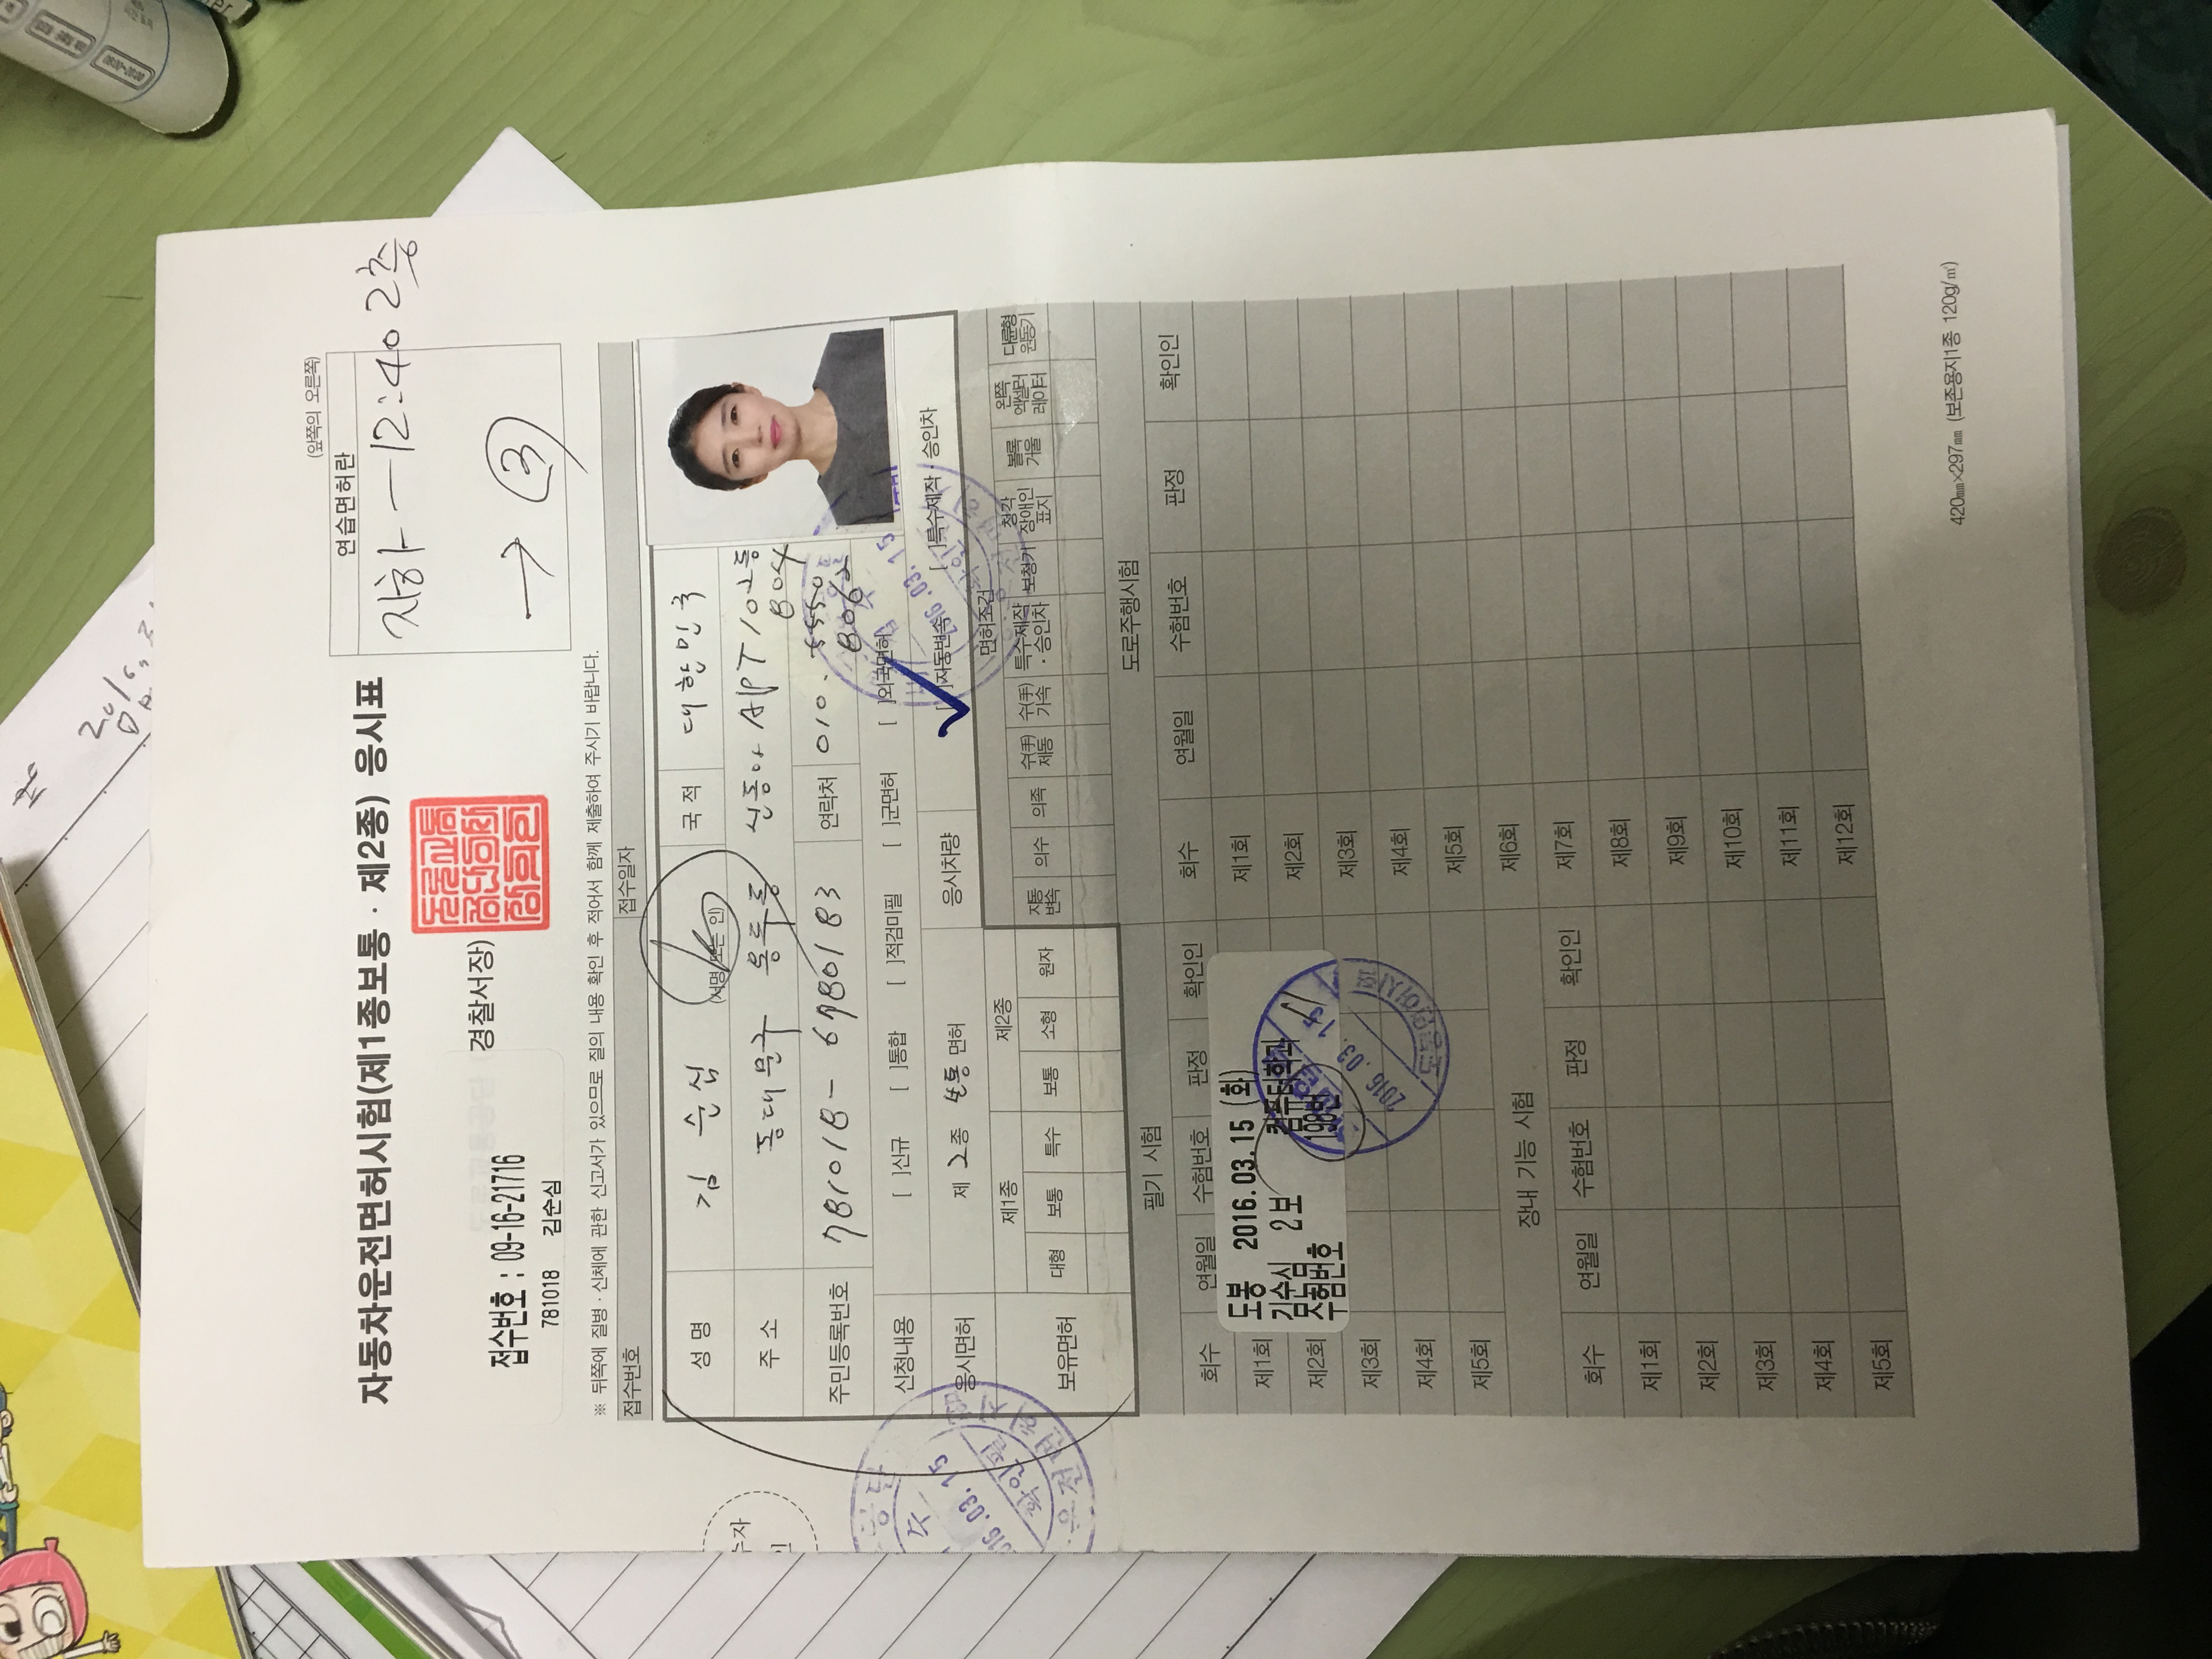 (앞쪽의 오른쪽)
자동차운전면허시험(제1종보통 · 제2종) 응시표
연습면허란
지하 - 12:40 2층
→ ③
접수번호 : 09-16-21716
781018 김순심
경찰서장)
※ 뒤쪽에 질병 · 신체에 관한 신고서가 있으므로 질의 내용 확인 후 적어서 함께 제출하여 주시기 바랍니다.
접수번호 접수일자
성 명 김 순 심 (서명 또는 인) 국 적 대한민국
주 소 동대문구 용두동 신동아 APT 102동 804
주민등록번호 781018 - 6980183 연락처 010. 5550 8062
신청내용 [ ]신규 [ ]통합 [ ]적검미필 [ ]군면허 [ ]외국면허
응시면허 제 2종 보통 면허 응시차량 [✓]자동변속 [ ]특수제작 · 승인차
보유면허 제1종 제2종
대형 보통 특수 보통 소형 원자
면허조건
자동변속 의수 의족 수(手)제동 수(手)가속 특수제작 · 승인차 보청기 청각장애인표지 볼록거울 왼쪽엑셀러레이터
필기 시험
회수 연월일 수험번호 판정 확인인
제1회
제2회
제3회
제4회
제5회
도봉 2016.03.15 (화)
김순심 2보
수험번호 198번
2016.03.15
장내 기능 시험
회수 연월일 수험번호 판정 확인인
제1회
제2회
제3회
제4회
제5회
도로주행시험
회수 연월일 수험번호 판정 확인인
제1회
제2회
제3회
제4회
제5회
제6회
제7회
제8회
제9회
제10회
제11회
제12회
420㎜×297㎜ (보존용지1종 120g/㎡)